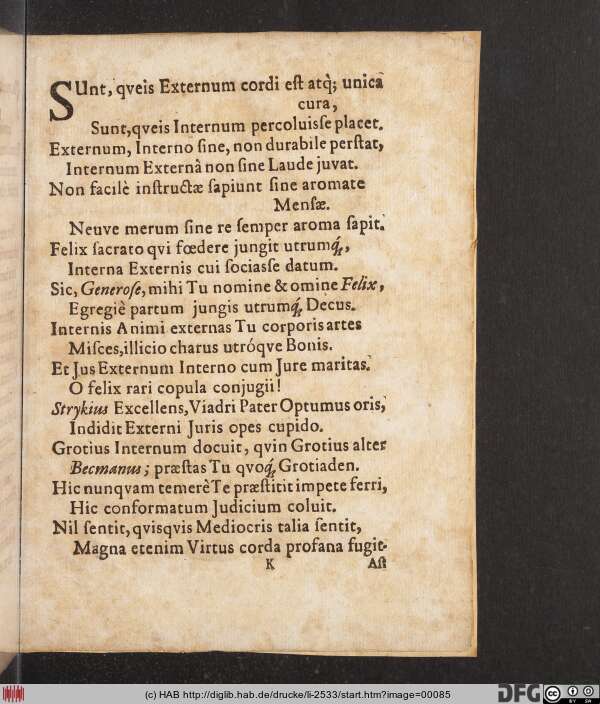 SUnt, qveis Externum cordi est atq́; unica
cura,
Sunt, qveis Internum percoluisse placet.
Externum, Interno sine, non durabile perstat,
Internum Externâ non sine Laude juvat.
Non facilè instructæ sapiunt sine aromate
Mensæ.
Neuve merum sine re semper aroma sapit.
Felix sacrato qvi fœdere jungit utrumq́;,
Interna Externis cui sociasse datum.
Sic, Generose, mihi Tu nomine & omine Felix,
Egregiè partum jungis utrumq́; Decus.
Internis Animi externas Tu corporis artes
Misces, illicio charus utróqve Bonis.
Et Jus Externum Interno cum Jure maritas.
O felix rari copula conjugii!
Strykius Excellens, Viadri Pater Optumus oris,
Indidit Externi Juris opes cupido.
Grotius Internum docuit, qvin Grotius alter
Becmanus; præstas Tu qvoq́; Grotiaden.
Hic nunqvam temerè Te præstitit impete ferri,
Hic conformatum Judicium coluit.
Nil sentit, qvisqvis Mediocris talia sentit,
Magna etenim Virtus corda profana fugit.
K Ast
(c) HAB http://diglib.hab.de/drucke/li-2533/start.htm?image=00085
DFG
cc BY SA